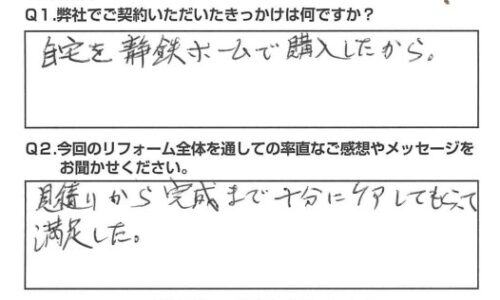 Q1.弊社でご契約いただいたきっかけは何ですか？
自宅を静鉄ホームで購入したから。
Q2.今回のリフォーム全体を通しての率直なご感想やメッセージを
お聞かせください。
見積りから完成まで十分にケアしてもらって
満足した。